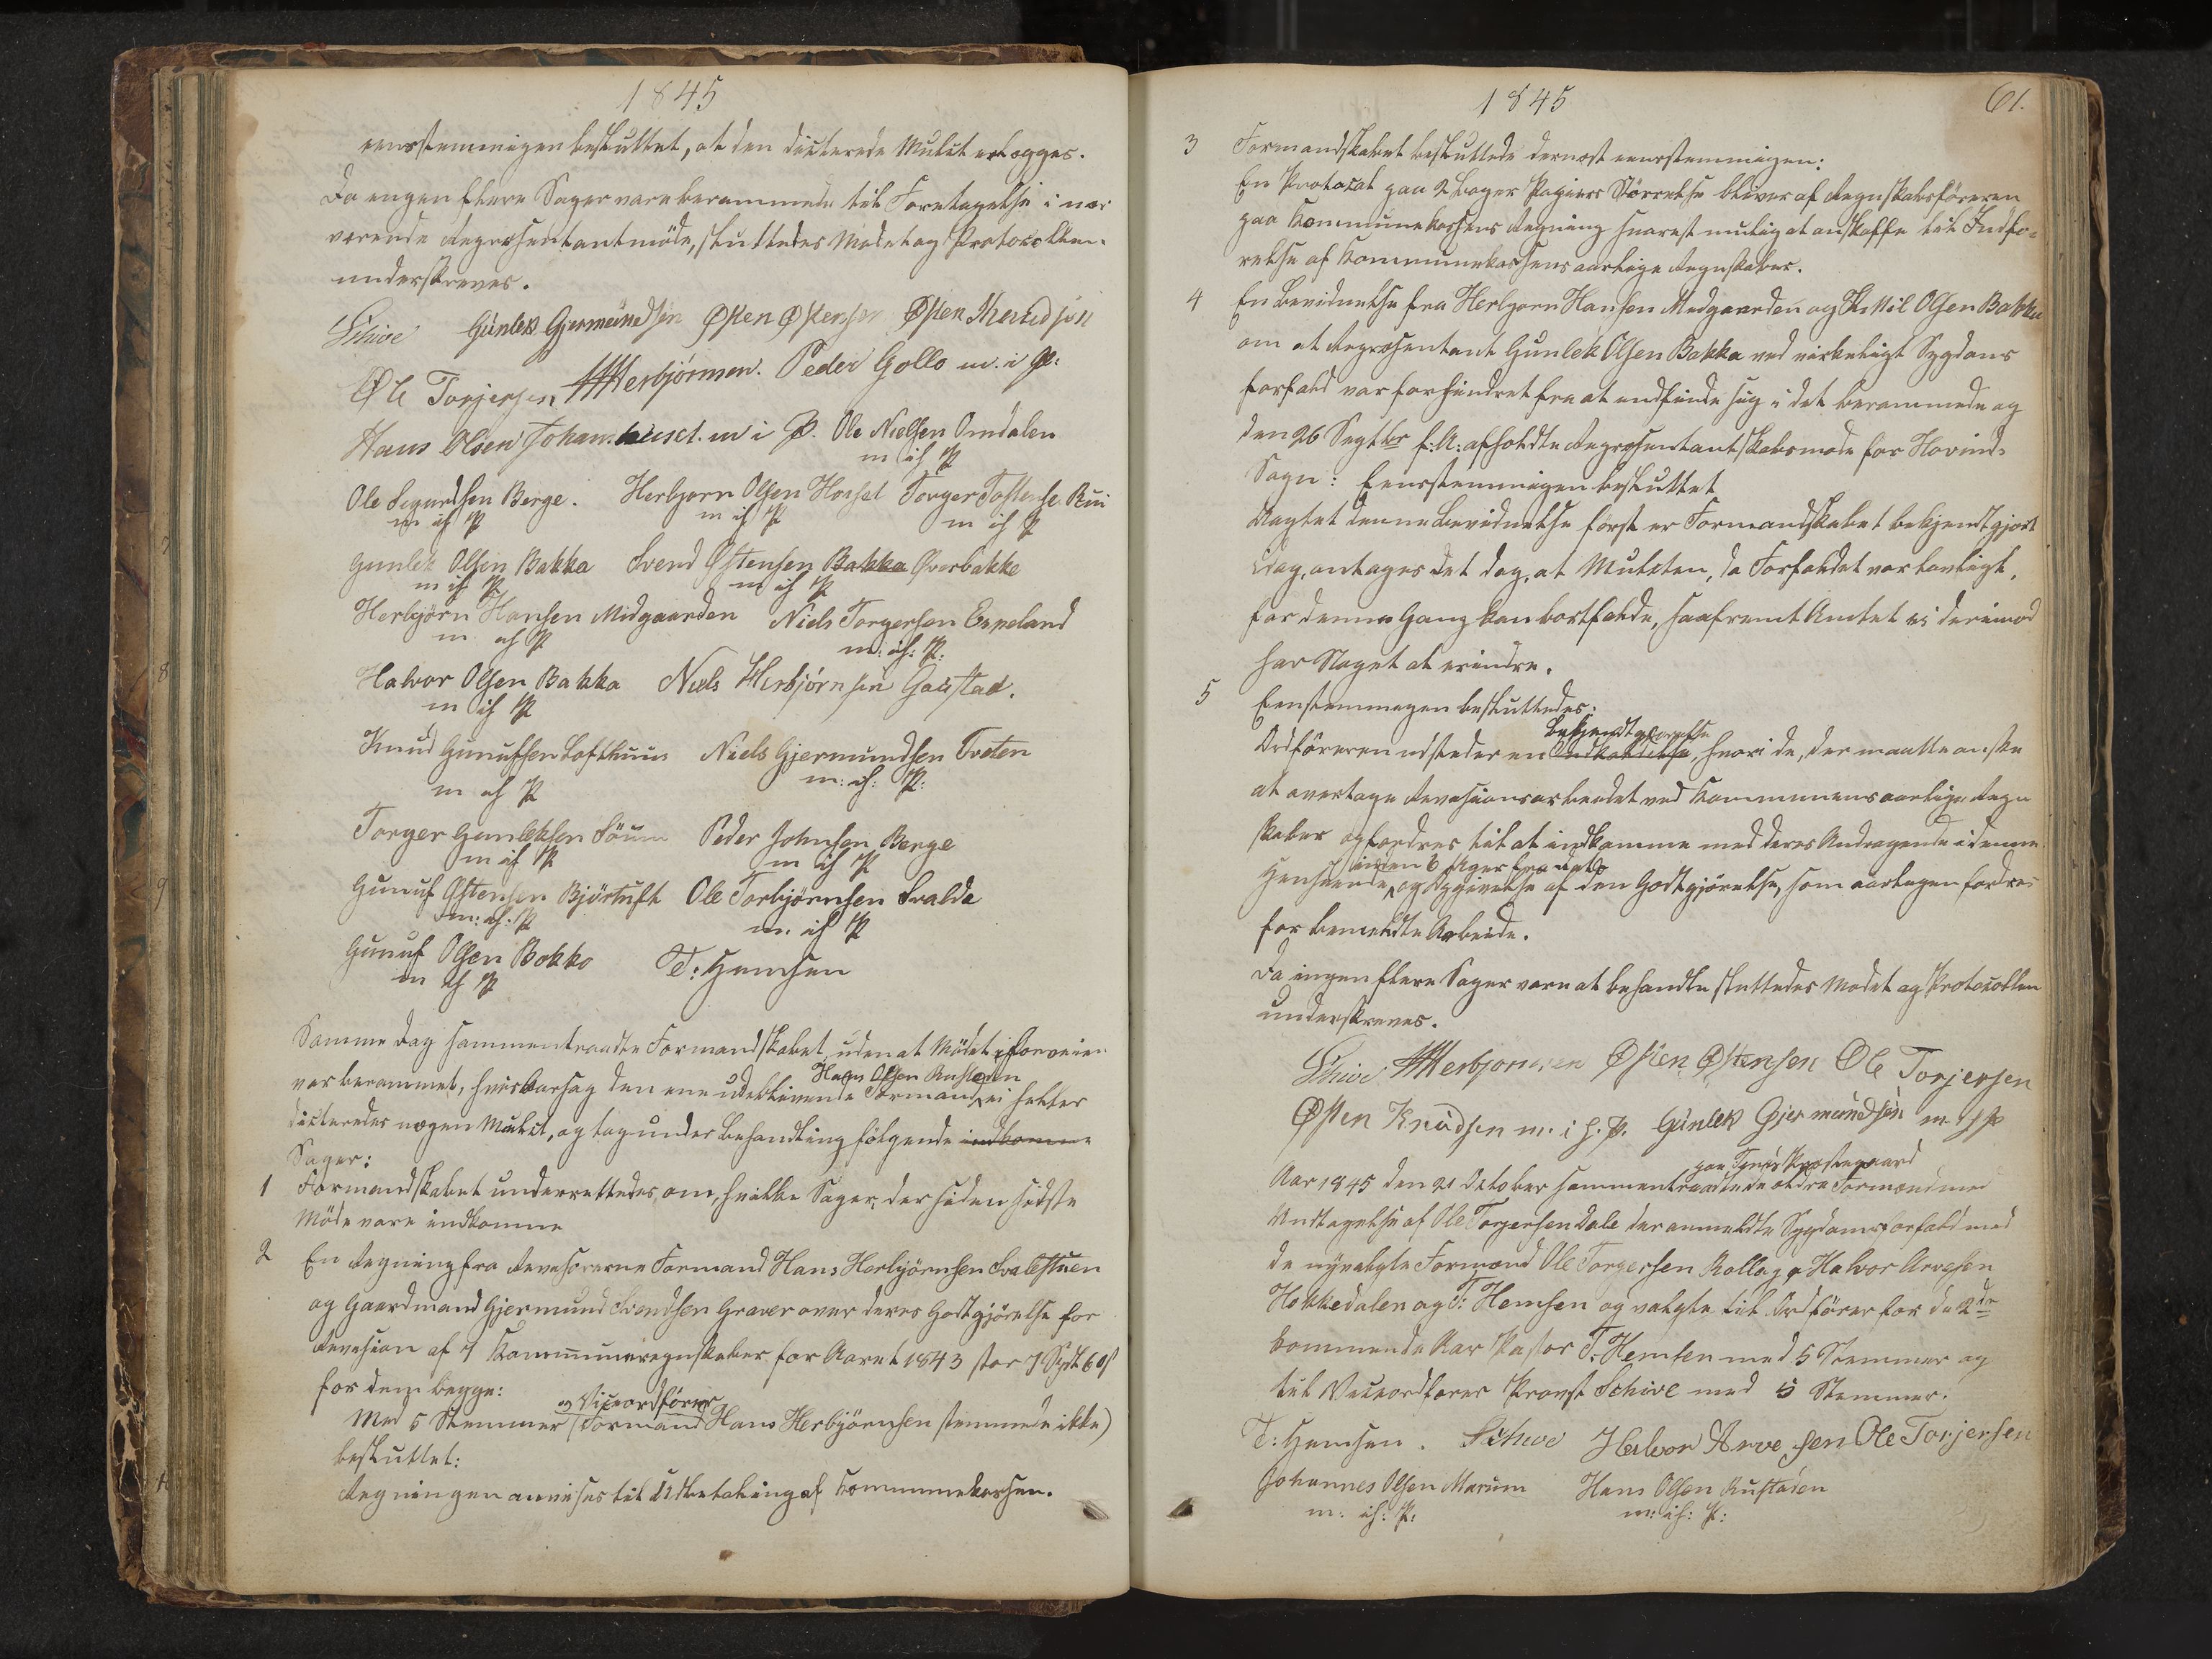 1845
eensstemmigen besluttet, at den dicterede Mulct erlægges.
Da engen flere Sager vare berammede til Foretagelse i nær
værende Repræsentantmöde, sluttedes Mödet og Protocollen
underskreves.
Schive Günlek Gjermündsen Østen Østensen Østen Knudsen
Ole Torjersen HHerbjörnsen. Peder Gollo m. i P:
Hans Olsen Johan. m i P. Ole Nielsen Omdalen
m i P
Ole Sigurdsen Berge. Herbjorn Olsen Hovset Torger Tostense Rui
m i P m i P m i P
Gunlek Olsen Bakka Svend Østensen Bakka Øverbakke
m i P m i P
Herbjörn Hansen Midgaarden Niels Torgersen Espeland
m i P m: i: P:
Halvor Olsen Bakka Niels Herbjörnsen Gaustad.
m i P
Knud Gunufsen Lofthuus Niels Gjermundsen Tveten
m i P m: i: P:
Torger Gunleksen Söum Peder Johnsen Berge
m i P m i P
Gunuf Østensen Björtuft Ole Torbjörnsen Svalde
m: i: P m. i P
Gunuf Olsen Bokko T: Hemsen
m i P
Samme Dag sammentraadte Formandskabet, uden at Mödet i forveien
Hans Olsen Rustaden
var berammet, hvisaarsag den ene udeblivende Formand ei heller
dicteredes nogen Mulct, og tog under Behandling fölgende indkomne
Sager:
1 Formandskabet underrettedes om, hvilke Sager, der siden sidste
Möde vare indkomne
2 En Regning fra Revisorerne Formand Hans Herbjörnsen Svalestuen
og Gaardmand Gjermund Svendsen Graver over deres Godtgjörelse for
Revision af 7 Kommuneregnskaber for Aaret 1843 stor 7 Spd 60 s
for dem begge:
og Viceordförer
Med 5 Stemmer (Formand Hans Herbjörnsen stemmede ikke)
besluttet:
Regningen anvises til Udbetaling af Kommunekassen.
1845 61.
3 Formandskabet besluttede dernæst eensstemmigen:
En Protocol paa 2 Boger Papiers Störrelse bliver af Regnskabsföreren
paa Kommunekassens Regning snarest muligt at anskaffe til Indfö-
relse af Kommunekassens aarlige Regnskaber.
4 En Bevidnelse fra Herbjorn Hansen Medgaarden og Kittil Olsen Bakka
om at Repræsentant Gunlek Olsen Bakka ved virkeligt Sygdoms
forfald var forhindret fra at indfinde sig i det berammede og
den 26 Septbr f: A: afholdte Repræsentantskabsmöde for Hovind
Sogn: Eensstemmigen besluttet
Uagtet denne Bevidnelse först er Formandskabet bekjendtgjort
idag, antages det dog, at Mulcten, da Forfaldet var lovligt,
for denne Gang kan bortfalde, saafremt Amtet ei derimod
har Noget at erindre.
5 Eenstemmigen besluttedes:
Bekjendtgjörelse
Ordföreren udsteder en Indkaldelse, hvori de, der maatte önske
at overtage Revisionsarbeidet ved Kommunens aarlige Regn
skaber opfordres til at indkomme med deres Andragende i denne
inden 6 Uger fra dato
Henseende, og Opgivelse af den Godtgjörelse, som aarligen fordres
for bemeldte Arbeide.
Da ingen flere Sager vare at behandle sluttedes Mödet og Protocollen
underskreves.
Schive HHerbjornsen Østen Østensen Ole Torjersen
Østen Knudsen m. i h. P. Günlek Gjermündsen m i P
paa Tinds Præstegaard
Aar 1845 den 21 October sammentraadte de ældre Formænd med
Undtagelse af Ole Torgersen Dale der anmeldte Sygdomsforfald med
de nyvalgte Formænd Ole Torgersen Rollag, Halvor Arvesen
Hakkedalen og T: Hemsen og valgte til Ordförer for de 2de
kommende Aar Pastor T. Hemsen med 5 Stemmer og
til Viceordförer Provst Schive med 5 Stemmer.
T: Hemsen. Schive Halvor Arvesen Ole Torjersen
Johannes Olsen Marum Hans Olsen Rustaden
m: i: P: m: i: P: